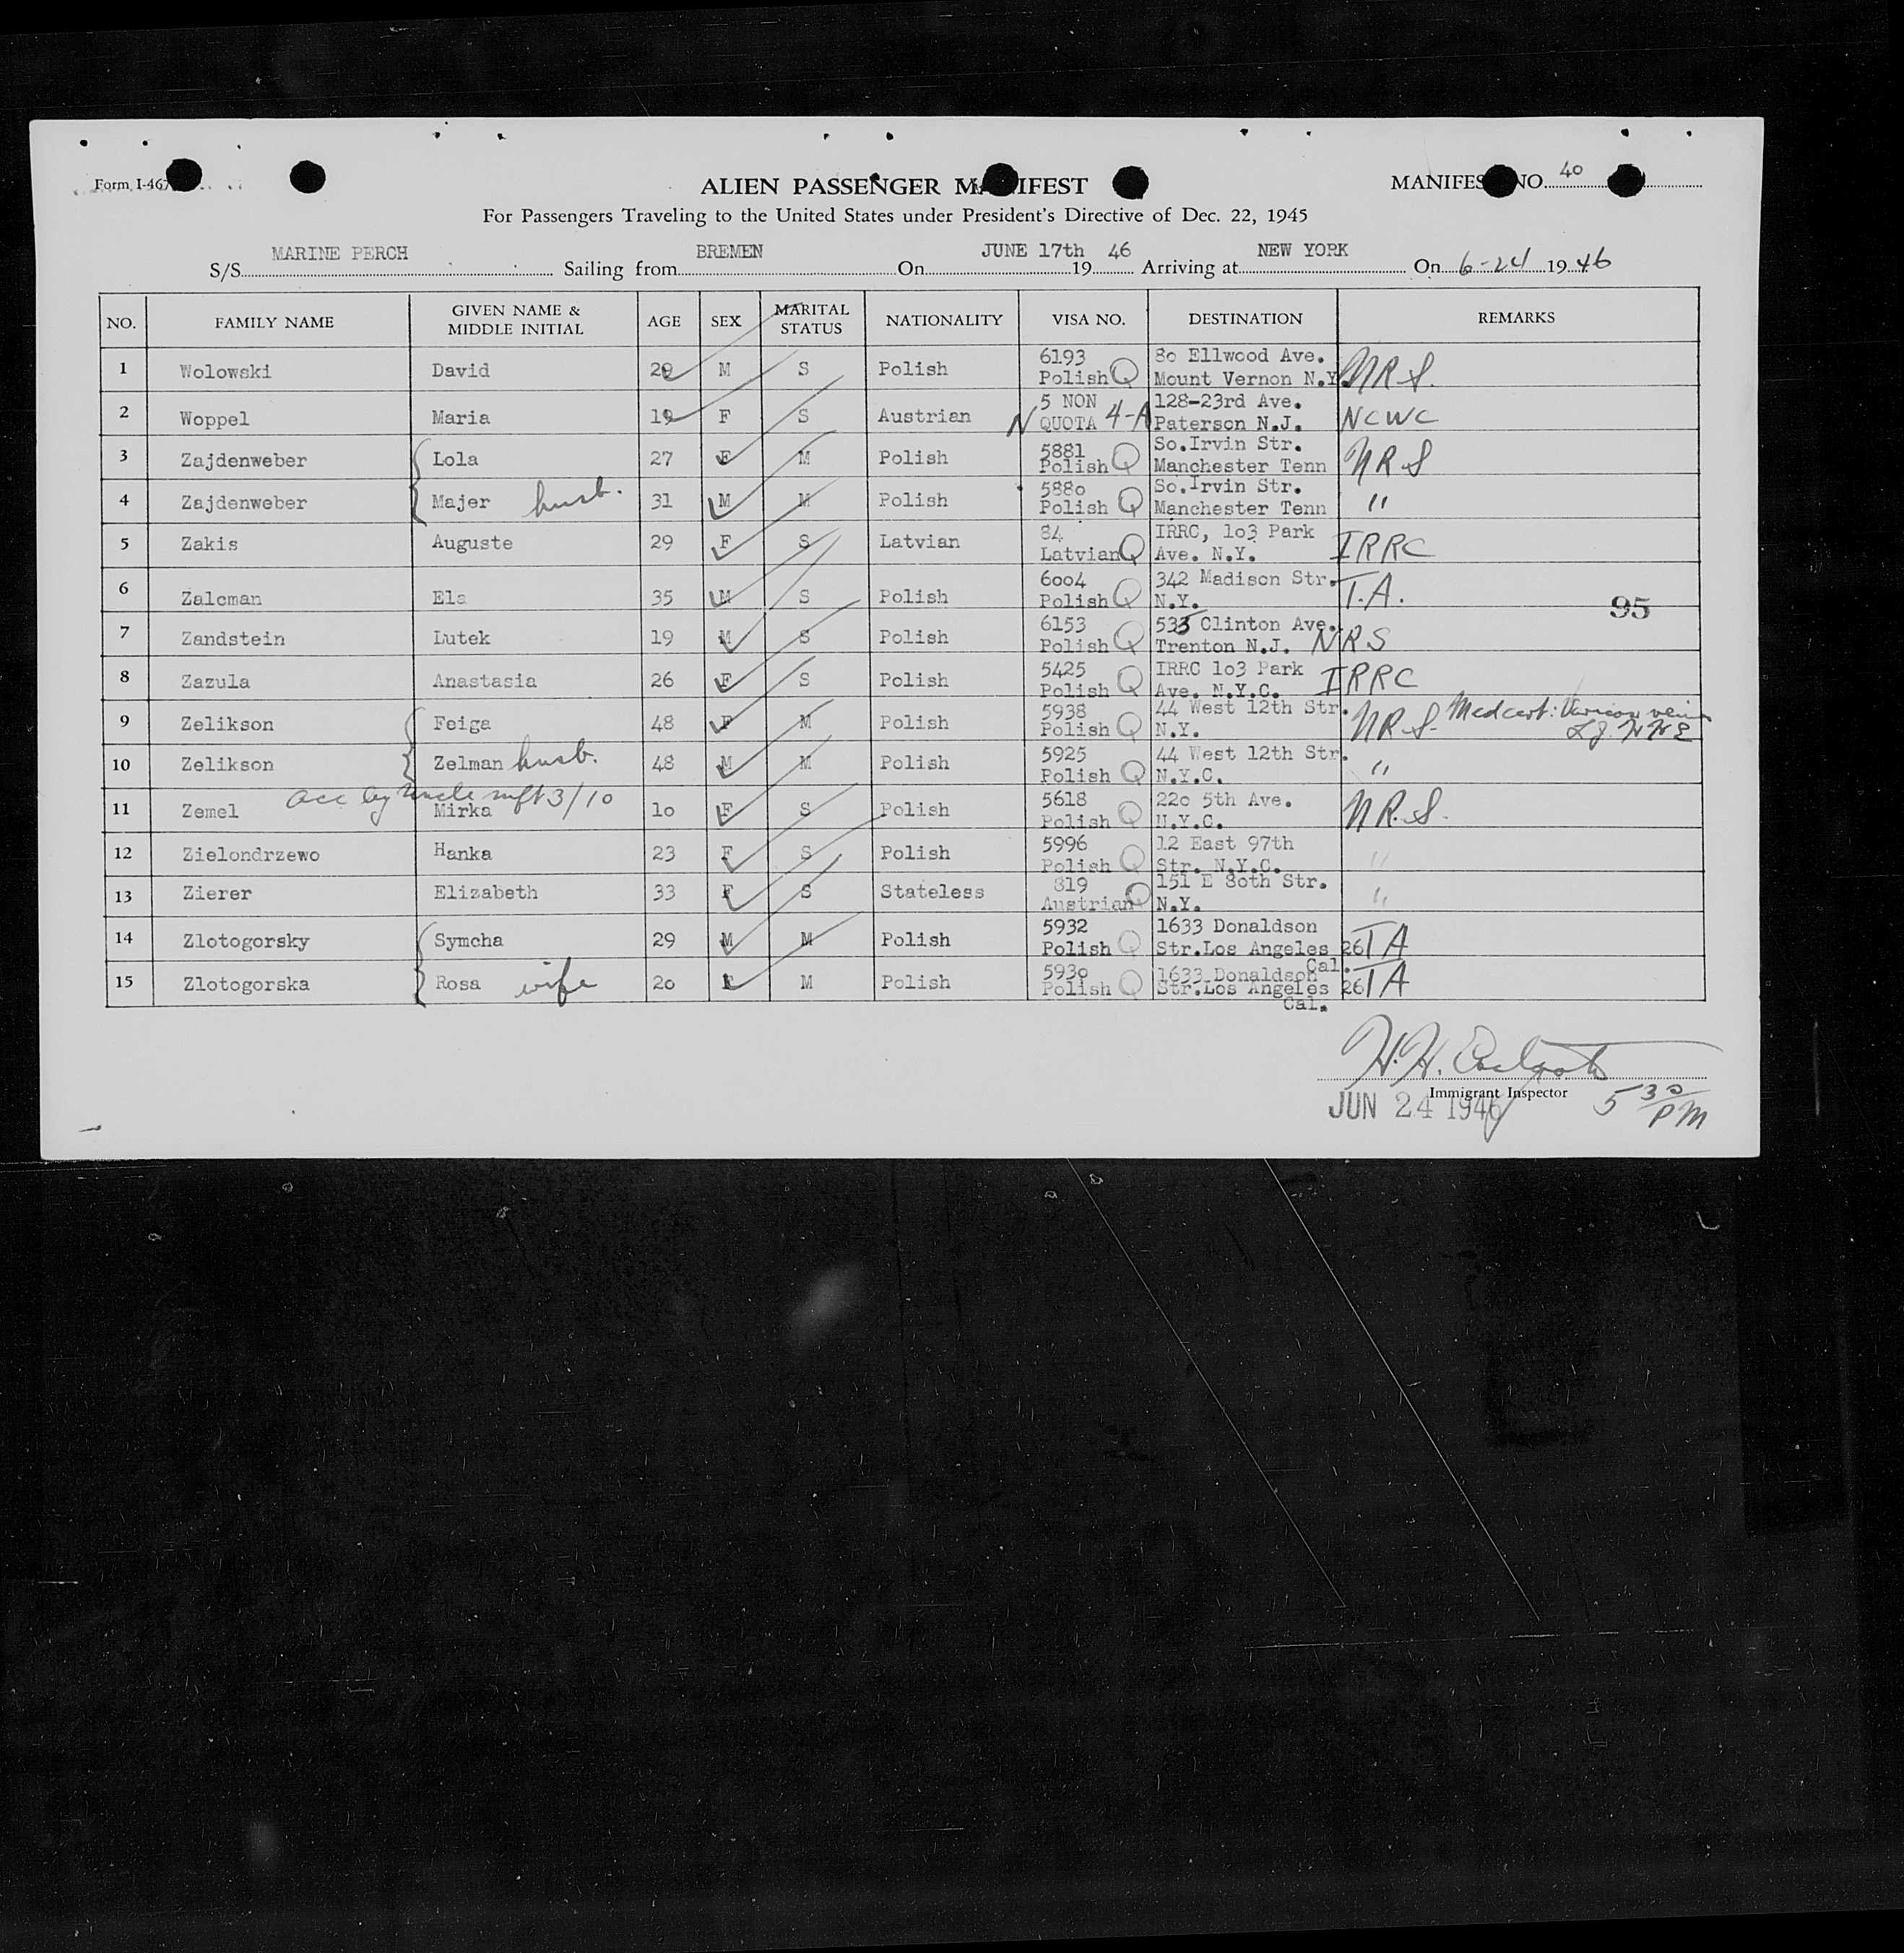 Form I-467
ALIEN PASSENGER MANIFEST
MANIFEST NO. 40
For Passengers Traveling to the United States under President's Directive of Dec. 22, 1945
S/S MARINE PERCH Sailing from BREMEN On JUNE 17th 1946 Arriving at NEW YORK On 6-24 1946
NO. FAMILY NAME GIVEN NAME & MIDDLE INITIAL AGE SEX MARITAL STATUS NATIONALITY VISA NO. DESTINATION REMARKS
1 Wolowski David M S Polish 6193 Polish Q 80 Ellwood Ave. Mount Vernon N.Y. NRS.
2 Woppel Maria 19 F S Austrian N 5 NON QUOTA 4-A 128-23rd Ave. Paterson N.J. NCWC
3 Zajdenweber Lola 27 F M Polish 5881 Polish Q So.Irvin Str. Manchester Tenn NRS
4 Zajdenweber Majer husb. 31 M M Polish 5880 Polish Q So.Irvin Str. Manchester Tenn "
5 Zakis Auguste 29 F S Latvian 84 Latvian Q IRRC, 1o3 Park Ave. N.Y. IRRC
6 Zalcman Ela 35 M S Polish 6oo4 Polish Q 342 Madison Str. N.Y. T.A.
95
7 Zandstein Lutek 19 M S Polish 6153 Polish Q 533 Clinton Ave. Trenton N.J. NRS
8 Zazula Anastasia 26 F S Polish 5425 Polish Q IRRC 1o3 Park Ave. N.Y.C. IRRC
9 Zelikson Feiga 48 F M Polish 5938 Polish Q 44 West 12th Str. N.Y. NRS. Med cert: Varicose veins
10 Zelikson Zelman husb. 48 M M Polish 5925 Polish Q 44 West 12th Str. N.Y.C. "
acc by Uncle mft 3/10
11 Zemel Mirka 1o F S Polish 5618 Polish Q 22o 5th Ave. N.Y.C. NR.S.
12 Zielondrzewo Hanka 23 F S Polish 5996 Polish Q 12 East 97th Str. N.Y.C. "
13 Zierer Elizabeth 33 F S Stateless 819 Austrian Q 151 E 8oth Str. N.Y. "
14 Zlotogorsky Symcha 29 M M Polish 5932 Polish Q 1633 Donaldson Str.Los Angeles 26 Cal. TA
15 Zlotogorska Rosa wife 2o F M Polish 593o Polish Q 1633 Donaldson Str.Los Angeles 26 Cal. TA
H.H.
Immigrant Inspector
JUN 24 1946
5 30 PM